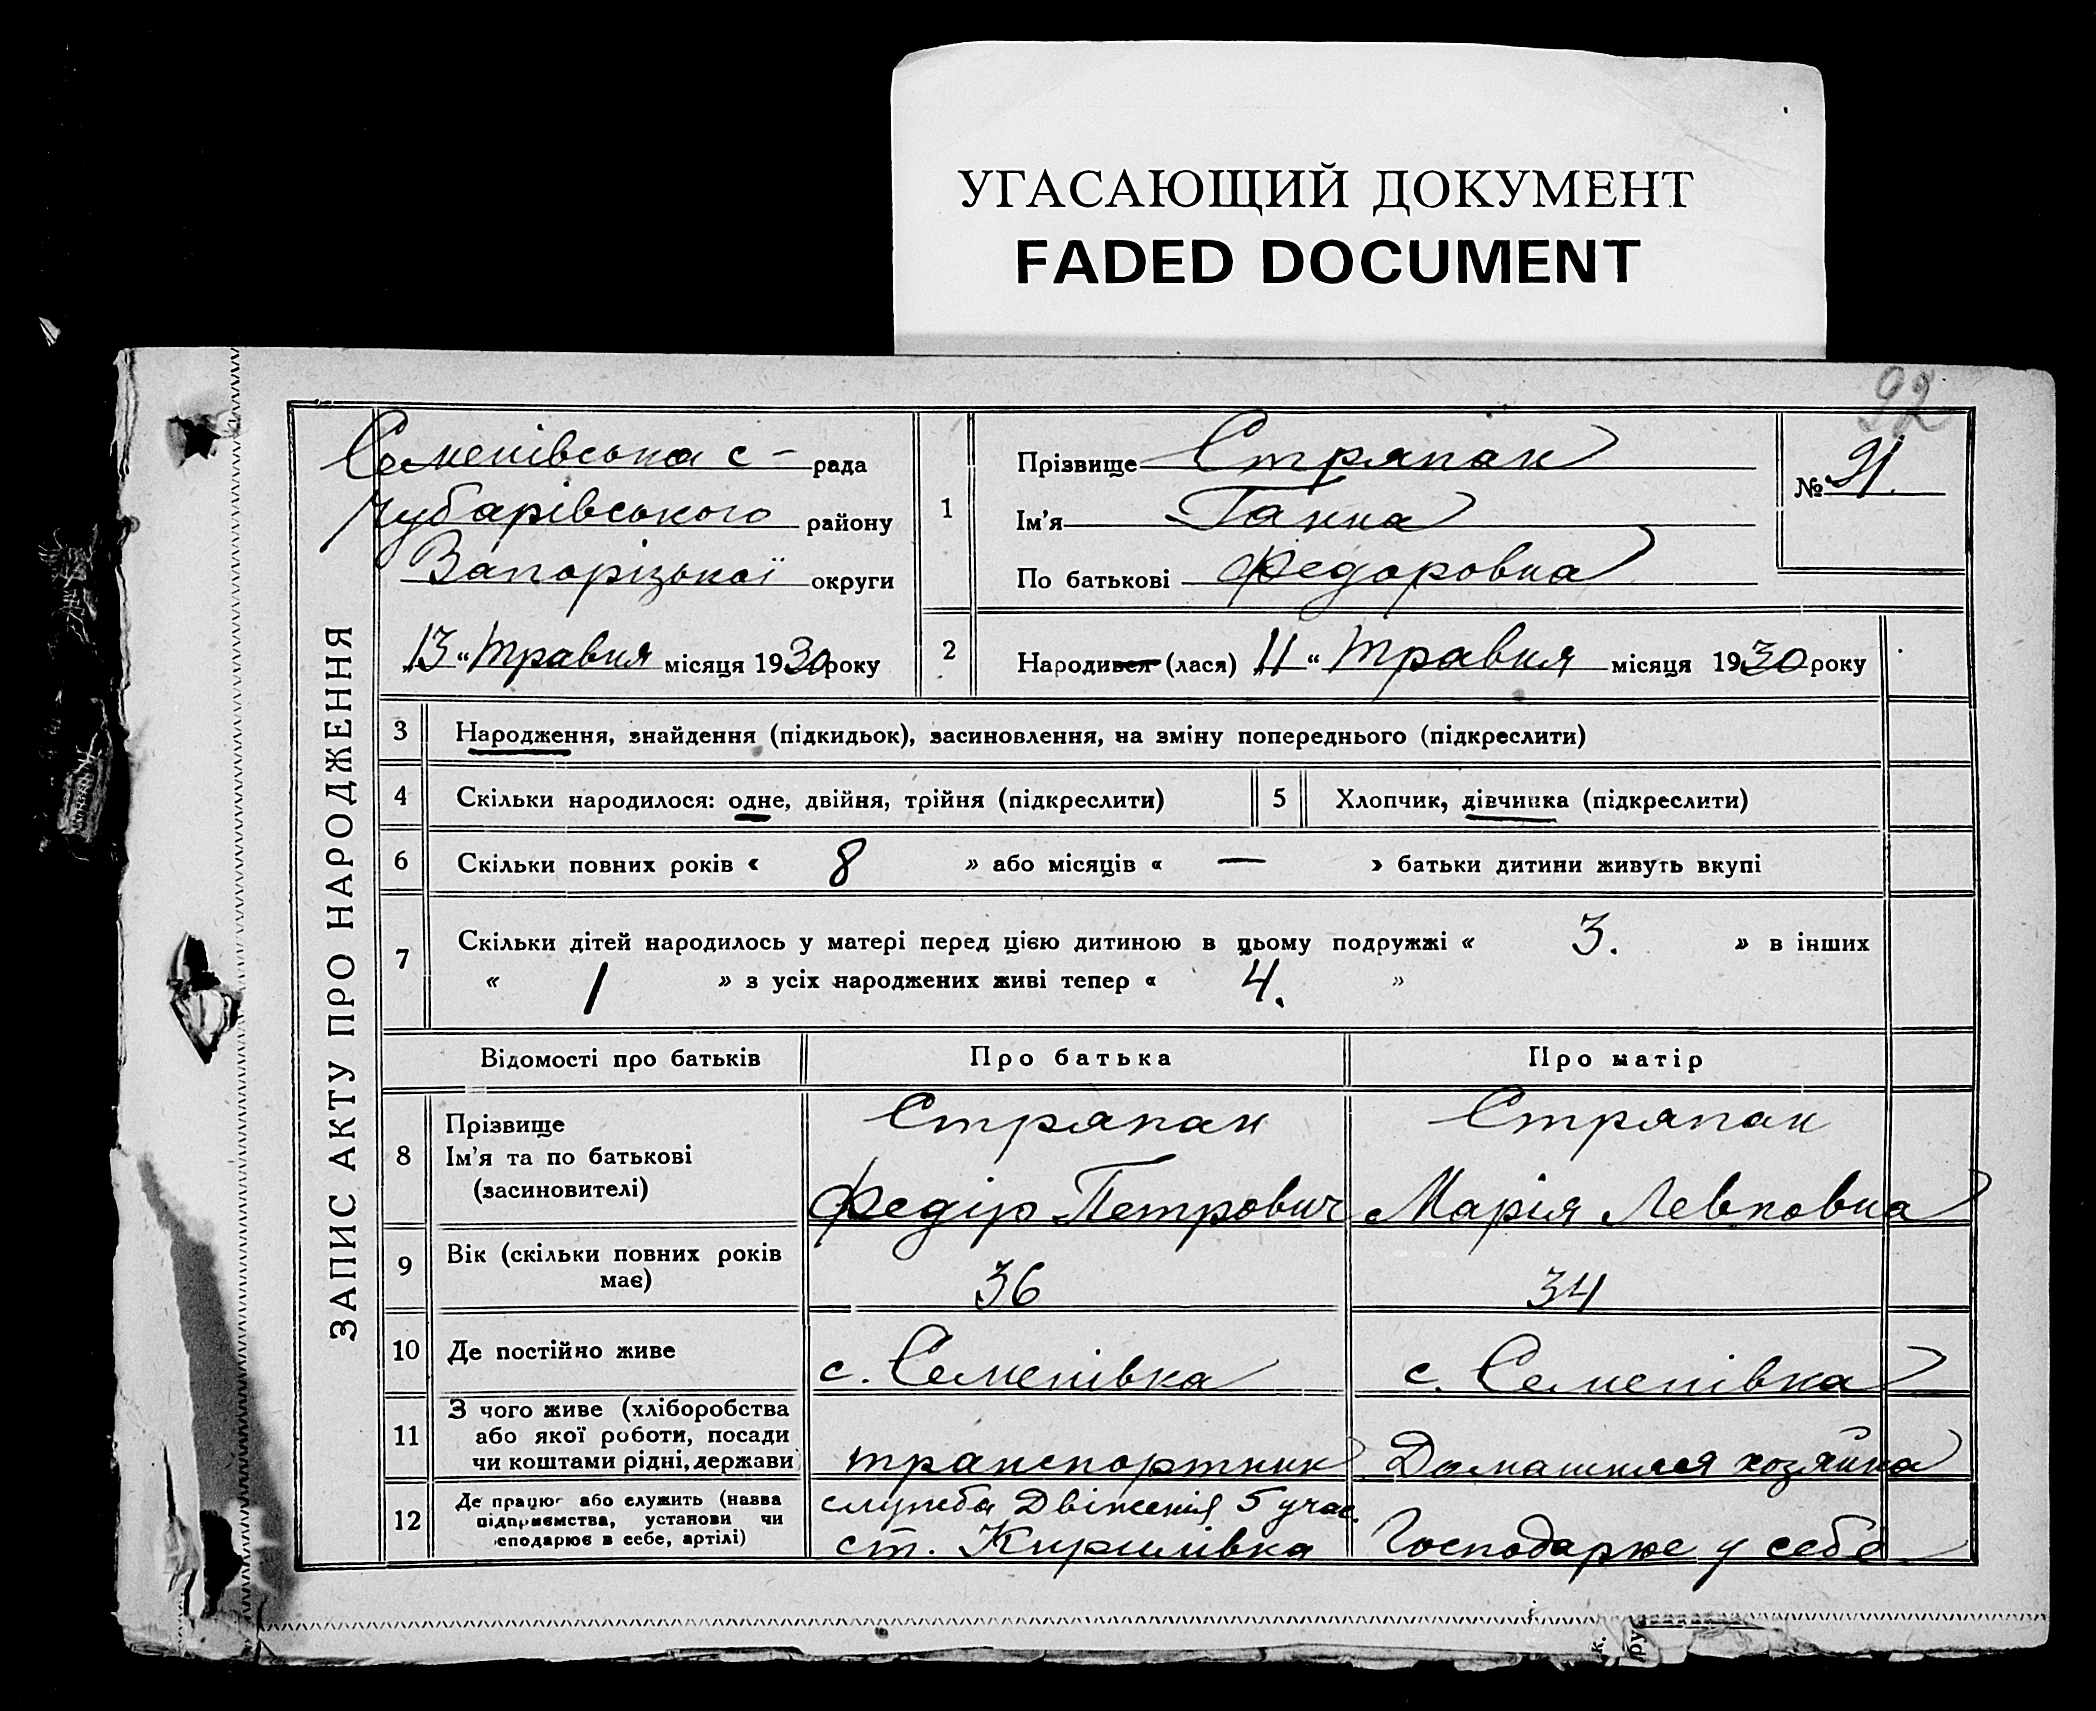 УГАСАЮЩИЙ ДОКУМЕНТ
FADED DOCUMENT
92
ЗАПИС АКТУ ПРО НАРОДЖЕННЯ
Семенівська с - рада
Чубарівського району
Запорізької округи
„13“ травня місяця 1930 року
1
Прізвище Стряпан
Ім'я Ганна
По батькові Федоровна
№ 91.
2 Народився (лася) 11 “ травня місяця 1930 року
3 Народження, знайдення (підкидьок), засиновлення, на зміну попереднього (підкреслити)
4 Скільки народилося: одне, двійня, трійня (підкреслити) 5 Хлопчик, дівчинка (підкреслити)
6 Скільки повних років « 8 » або місяців « — » батьки дитини живуть вкупі
7 Скільки дітей народилось у матері перед цією дитиною в цьому подружжі « 3. » в інших
« 1 » з усіх народжених живі тепер « 4. »
Відомості про батьків Про батька Про матір
8 Прізвище Стряпан Стряпан
Ім'я та по батькові
(засиновителі) Федір Петрович Марія Левковна
9 Вік (скільки повних років
має) 36 34
10 Де постійно живе с. Семенівка с. Семенівка
11 З чого живе (хліборобства
або якої роботи, посади
чи коштами рідні, держави транспортник Домашняя хозяйка
12 Де працює або служить (назва служба Двіженія 5 учас.
підприємства, установи чи
сподарює в себе, артілі) ст. Кирилівка Господарює у себе
к.
ру